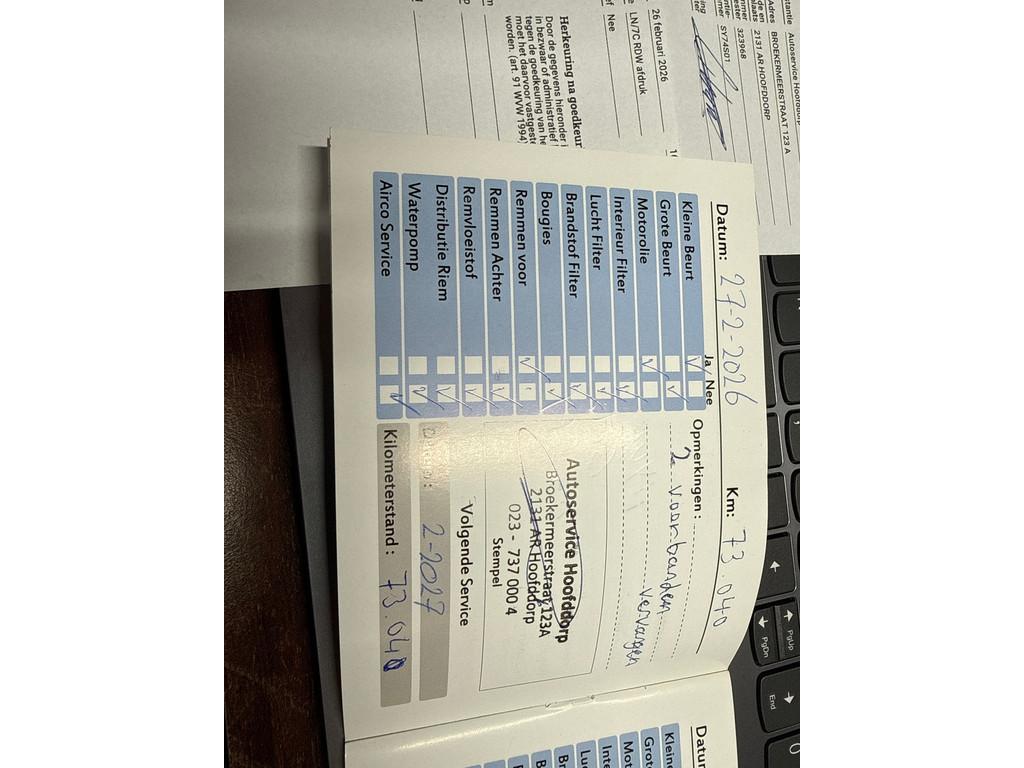 Instantie Autoservice Hoofddorp
Adres BROEKERMEERSTRAAT 123 A
2131 AR HOOFDDORP
323968
SY74S01
26 februari 2026
LN/7C RDW afdruk
Nee
Herkeuring na goedkeur
Door de gegevens hieronder i
in bezwaar of administratief
tegen de goedkeuring van he
moet het daarvoor vastgeste
worden. (art. 91 WVW 1994)
Datum: 27-2-2026 Km: 73.040
Ja Nee
Kleine Beurt
Grote Beurt
Motorolie
Interieur Filter
Lucht Filter
Brandstof Filter
Bougies
Remmen voor
Remmen Achter
Remvloeistof
Distributie Riem
Waterpomp
Airco Service
Opmerkingen :
2x voorbanden
vervangen
Autoservice Hoofddorp
Broekermeerstraat 123A
2131 AR Hoofddorp
023 - 737 000 4
Stempel
Volgende Service
Datum: 2-2027
Kilometerstand : 73.040
Datu
Kleine
Grot
Mot
Inte
Luc
B
PgUp
PgDn
End